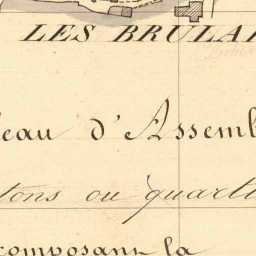 LES BRULA
eau d'Assemb
tons ou quarti
composant la